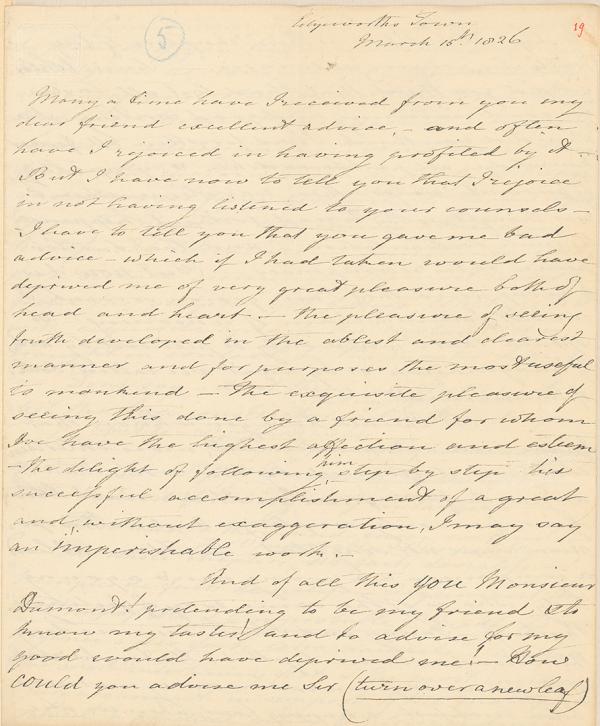 5
19
Edgeworths Town
March 15th 1826
Many a time have I received from you my
dear friend excellent advice, – and often
have I rejoiced in having profited by it –
But I have now to tell you that I rejoice
in not having listened to your counsels –
I have to tell you that you gave me bad
advice – which if I had taken would have
deprived me of very great pleasure both of
head and heart – the pleasure of seeing
truth developed in the ablest and clearest
manner and for purposes the most useful
to mankind – the exquisite pleasure of
seeing this done by a friend for whom
I have the highest affection and esteem
– the delight of following him step by step his
successful accomplishment of a great
and, without exaggeration, I may say
an imperishable work. –
And of all this you Monsieur
Dumont! pretending to be my friend & to
know my tastes! and to advise for my
good would have deprived me! – How
could you advise me Sir (turn over a new leaf)